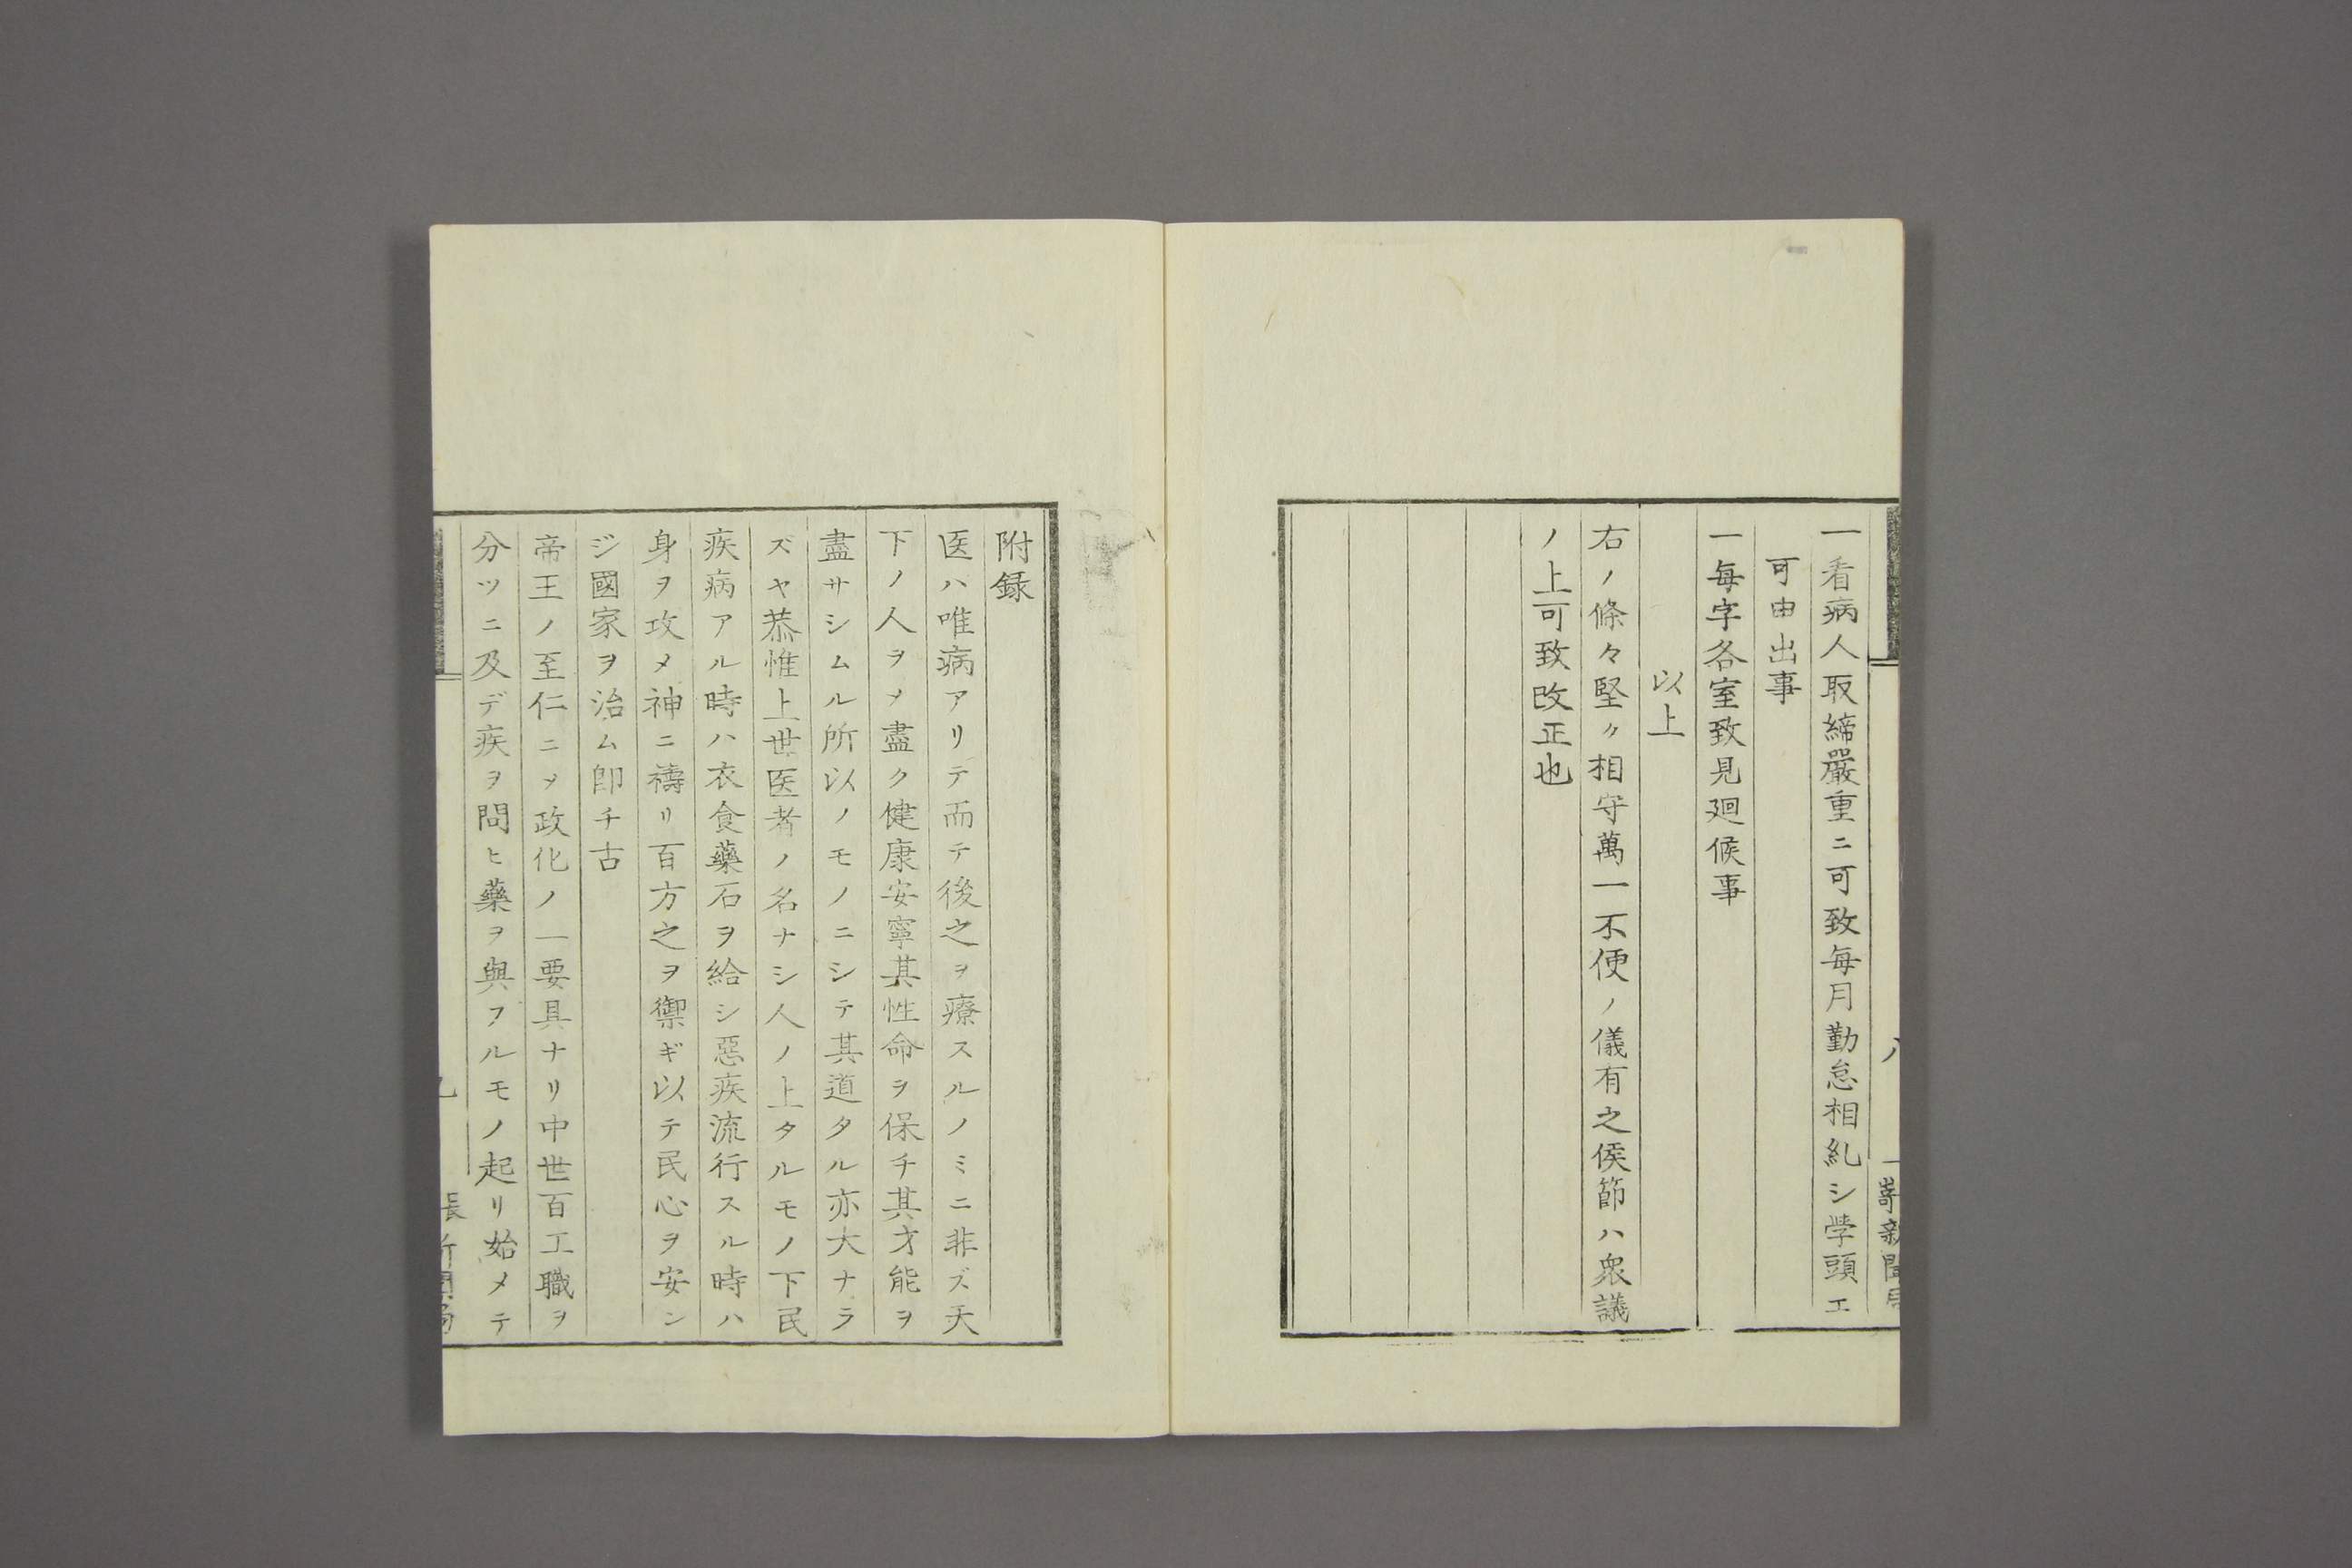 一看病人取締嚴重ニ可致每月勤怠相糺シ学頭エ
可由出事
一每字各室致見廻候事
以上
右ノ條々堅ク相守萬一不便ノ儀有之侯節ハ衆議
ノ上可致改正也
附録
医ハ唯病アリテ而テ後之ヲ療スルノミニ非ズ天
下ノ人ヲメ盡ク健康安寧其性命ヲ保チ其才能ヲ
盡サシムル所以ノモノニシテ其道タル亦大ナラ
ズヤ恭惟上世医者ノ名ナシ人ノ上タルモノ下民
疾病アル時ハ衣食藥石ヲ給シ惡疾流行スル時ハ
身ヲ攻メ神ニ禱リ百方之ヲ禦ギ以テ民心ヲ安ン
ジ國家ヲ治ム卽チ古
帝王ノ至仁ニメ政化ノ一要具ナリ中世百工職ヲ
分ツニ及デ疾ヲ問ヒ藥ヲ與フルモノ起リ始メテ